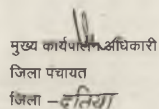 मुख्य कार्यपालन अधिकारी
जिला पंचायत
जिला – दतिया